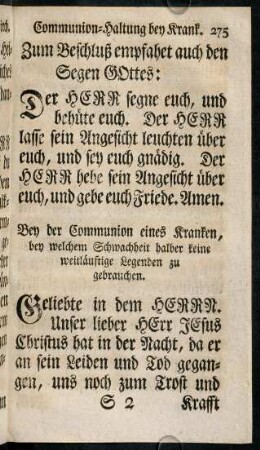 Communion-Haltung bey Krank. 275
Zum Beschluß empfahet auch den
Segen GOttes:
Der HERR segne euch, und
behüte euch. Der HERR
lasse sein Angesicht leuchten über
euch, und sey euch gnädig. Der
HERR hebe sein Angesicht über
euch, und gebe euch Friede. Amen.
Bey der Communion eines Kranken,
bey welchem Schwachheit halber keine
weitläuftige Legenden zu
gebrauchen.
Geliebte in dem HERRN.
Unser lieber HErr JEsus
Christus hat in der Nacht, da er
an sein Leiden und Tod gegan-
gen, uns noch zum Trost und
S 2 Krafft